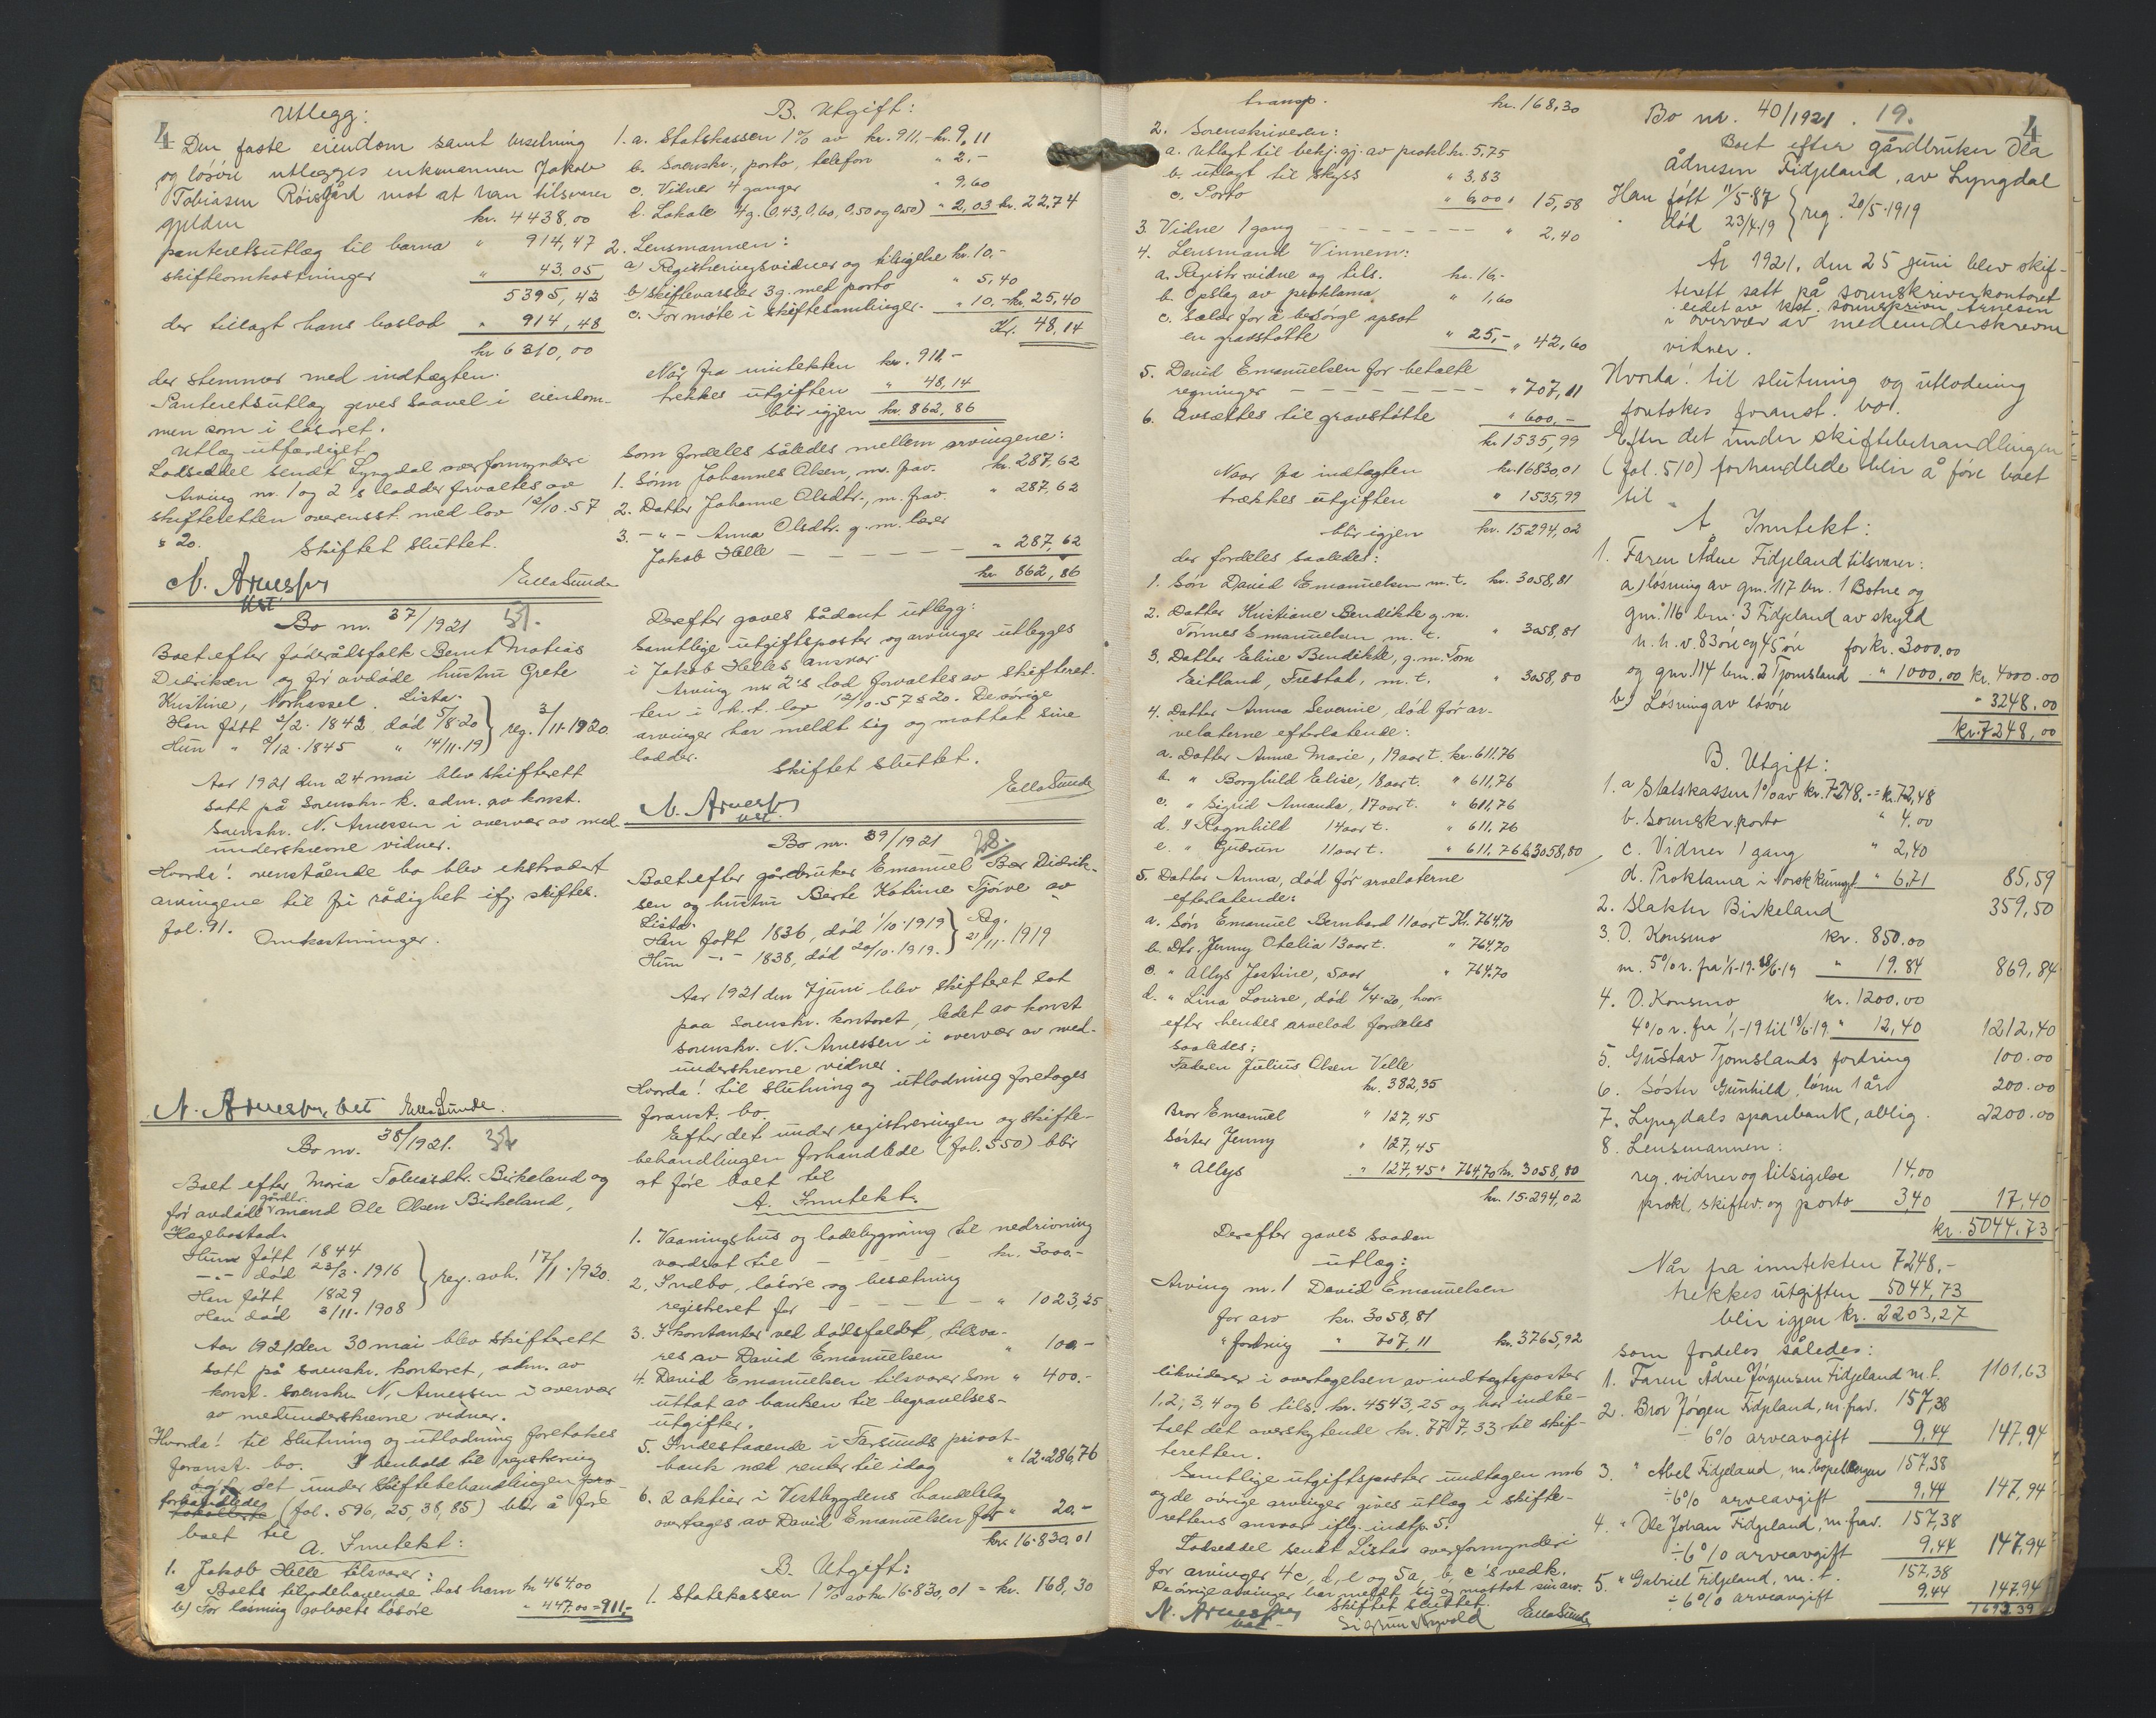 4
Utlegg:
Den faste eiendom samt besetning
og løsøre utlegges enkemannen Jakob
Tobiassen Røisgård mot at han tilsvarer
gjelden kr. 4438,00
panteretsutlæg til barna " 914,47
skifteomkostninger " 43,05
5395,42
der tillagt hans boslod " 914,48
kr 6310,00
der stemmer med indtægten.
Panteretsutlæg gives saavel i eiendom-
men som i løsøret.
Utlæg utfærdiget
Lodseddel sendt Lyngdal overformynderi
Arving nr. 1 og 2's lodder forvaltes av
skifteretten overensst. med lov 12/10.57
§ 20.
Skiftet sluttet.
N. Arnessen
kst.
Ella Sunde
Bo nr. 37/1921 31.
Boet efter føderådsfolk Bernt Matias
Didriksen og før avdøde hustru Grete
Kristine, Norhassel. Lista.
Han født 2/2. 1842 død 5/8.20
Hun " 9/12. 1845 " 14/11.19
reg. 3/11.1920.
Aar 1921 den 24 mai blev skifterett
satt på sorenskr.k. adm. av konst.
sorenskr. N. Arnessen i overvær av med-
underskrevne vidner.
Hvorda! ovenstående bo blev ekstradert
arvingene til fri rådighet ifg. skiftes.
fol. 91.
Omkostninger.
N. Arnessen kst Ella Sunde.
Bo nr. 38/1921. 32
Boet efter Maria Tobiasdtr. Birkeland og
før avdøde gårdbr. mand Ole Olsen Birkeland,
Hægebostad.
Hun født 1844
-"- død 23/3. 1916
Han født 1829
Han død 3/11. 1908
reg. avh. 17/11.1920.
Aar 1921 den 30 mai blev skifterett
satt på sorenskr. kontoret, adm. av
konst. sorenskr N. Arnessen i overvær
av medunderskrevne vidner.
Hvorda! til slutning og utlodning foretakes
foranst. bo. I henhold til registrering
og det under skiftebehandlingen
forhandlede (fol. 596, 25, 38, 85) blir å føre
boet til
A. Inntekt:
1. Jakob Helle tilsvarer:
a) Boets tilgodehavende hos ham kr 464.00
b) For løsning av boets løsøre " 447.00 = 911,-
B. Utgift:
1. a. Statskassen 1% av kr. 911,- kr. 9,11
b. Sorenskr., porto, telefon " 2,-
c. Vidner 4 ganger " 9,60
d. Lokale 4g. (0,43, 0,60, 0,50 og 0,50) " 2,03 kr. 22,74
2. Lensmannen:
a) Registreringsvidner og tilsigelse kr. 10.-
b) Skiftevarsler 3 g. med porto " 5,40
c. For møte i skiftesamlinger. " 10,- kr. 25,40
Kr. 48,14
Når fra inntekten kr. 911.-
trekkes utgiften " 48,14
blir igjen kr. 862,86
som fordeles således mellem arvingene:
1. Sønn Johannes Olsen, m. frav. kr. 287,62
2. Datter Johanne Olsdtr., m. frav. " 287,62
3. -"- Anna Olsdtr. g. m. lærer
Jakob Helle " 287,62
kr 862,86
Derefter gaves sådant utlegg:
Samtlige utgiftsposter og arvinger utlegges
i Jakob Helles ansvar
Arving nr 2's lod forvaltes av skifteret-
ten i h. t. lov 12/10-57 § 20. De øvrige
arvinger har meldt sig og mottat sine
lodder.
Skiftet sluttet.
N. Arnessen
kst.
Ella Sunde
Bo nr. 39/1921 28.
Boet efter gårdbruker Emanuel Bær Didrik-
sen og hustru Berte Katrine Tjörve av
Lista.
Han født 1836, død 1/10.1919
Hun -"- 1838, død 20/10.1919.
Reg. 21/11.1919
Aar 1921 den 7 juni blev skifteret sat
paa sorenskr. kontoret, ledet av konst
sorenskr. N. Arnessen i overvær av med-
underskrevne vidner.
Hvorda! til slutning og utlodning foretages
foranst. bo.
Efter det under registreringen og skifte-
behandlingen forhandlede (fol. 550) blir
at føre boet til
A. Inntekt.
1. Vaaningshus og ladebygning til nedrivning
verdsat til kr. 3000.-
2. Indbo, løsøre og besætning
registreret for " 1023,25
3. I kontanter ved dødsfaldet, tilsva-
res av David Emanuelsen " 100,-
4. David Emanuelsen tilsvarer som " 400.-
uttat av banken til begravelses-
utgifter.
5. Indestaaende i Farsunds privat-
bank med renter til idag " 12.286,76
6. 2 aktier i Vestbygdens handelslag
overtages av David Emanuelsen for " 20.-
kr. 16.830,01
B. Utgift:
1. Statskassen 1% av kr 16.830,01 = kr. 168,30
transp. kr. 168,30
2. Sorenskriveren:
a. Utlagt til bekj.gj. av prokl. kr. 5,75
b. utlagt til skyss " 3,83
c. Porto " 6,00 " 15,58
3. Vidne 1 gang " 2,40
4. Lensmand Vinnem:
a. Registr. vidne og tils. kr. 16,-
b. Opslag av proklama " 1,60
c. Salær for å besørge opsat
en gravstøtte " 25,- " 42,60
5. David Emanuelsen for betalte
regninger " 707,11
6. Avsættes til gravstøtte " 600,-
kr. 1535,99
Naar fra indtægten kr. 16830,01
trækkes utgiften " 1535,99
blir igjen kr. 15294,02
der fordeles saaledes:
1. Søn David Emanuelsen m. t. kr. 3058,81
2. Datter Kristiane Bendikte g. m.
Tønnes Emanuelsen m. t. " 3058,81
3. Datter Eline Bendikte, g. m. Tom
Eitland, Træstad, m. t. " 3058,80
4. Datter Anna Severine, død før ar-
velaterne efterlatende:
a. Datter Anne Marie, 19 aar t. kr. 611.76
b. " Borghild Elise, 18 aar t. " 611,76
c. " Sigrid Amanda, 17 aar t. " 611,76
d. " Ragnhild 14 aar t. " 611.76
e. " Gudrun 11 aar t. " 611.76 kr. 3058,80
5. Datter Anna, død før arvelaterne
efterlatende:
a. Søn Emanuel Bernhard 11 aar t Kr. 764.70
b. Dtr. Jenny Otelia 13 aar t. " 764.70
c. " Allys Jostine, 5 aar " 764.70
d. " Lina Lovise, død 6/4.20, hvor-
efter hendes arvelod fordeles
saaledes:
Faderen Julius Olsen Velle
kr. 382,35
Bror Emanuel " 127,45
Søster Jenny " 127,45
" Allys " 127,45 " 764,70 kr. 3058,80
kr. 15.294,02
Derefter gaves saadan
utlæg:
Arving nr. 1 David Emanuelsen
for arv kr. 3058,81
" fordring " 707,11 kr. 3765,92
likviderer i overtagelsen av indtægtsposter
1, 2, 3, 4 og 6 tils. kr. 4543,25 og har indbe-
talt det overskytende kr. 777,33 til skif-
teretten.
Samtlige utgiftsposter undtagen nr. 6
og de øvrige arvinger gives utlæg i skifte-
rettens ansvar iflg. indtp. 5.
Lodseddel sendt Listas overformynderi
for arvinger 4c, d, e og 5a, b, c's vedk.
De øvrige arvinger har meldt sig og mottat sin arv.
Skiftet sluttet.
N. Arnessen
kst.
Ella Sunde
4
Bo nr. 40/1921. 19.
Boet efter gårdbruker Ola
Ådnesen Fidjeland, av Lyngdal
Han født 11/5-87
" død 23/4.19
reg. 20/5-1919
År 1921, den 25 juni blev skif-
terett satt på sorenskriverkontoret
ledet av kst. sorenskriver Arnesen
i overvær av medunderskrevne
vidner.
Hvorda! til slutning og utlodning
foretokes foranst. bo.
Efter det under skiftebehandlingen
(fol. 510) forhandlede blir å føre boet
til
A Inntekt:
1. Faren Ådne Fidjeland tilsvarer:
a) løsning av gnr. 117 bnr. 1 Botne og
gnr. 116 bnr. 3 Fidjeland av skyld
h.h.v. 83 øre og 45 øre for kr. 3000.00
og gnr. 114 bnr. 2 Tjomsland " 1000,00 kr. 4000.00
b) Løsning av løsøre " 3248.00
kr. 7248,00
B. Utgift:
1. a Statskassen 1% av kr. 7248.- = kr. 72,48
b. Sorenskr. porto " 4.00
c. Vidner 1 gang " 2,40
d. Proklama i Norsk kunngj. " 6,71 85,59
2. Slakter Birkeland 359,50
3. O. Konsmo kr. 850.00
m. 5% r. fra 1/1-19-18/6-19 " 19.84 869,84
4. O. Konsmo kr. 1200.00
4% r. fra 1/1-19 til 18/6.19 " 12,40 1212,40
5. Gustav Tjomslands fordring 100.00
6. Søster Gunhild, lønn 1 år 200.00
7. Lyngdals sparebank, oblig. 2200.00
8. Lensmannen:
reg. vidner og tilsigelse 14,00
prokl, skiftev. og porto 3,40 17,40
kr. 5044.73
Når fra inntekten 7248,-
trekkes utgiften 5044,73
blir igjen kr. 2203,27
som fordeles således:
1. Faren Ådne Jørgensen Fidjeland m. t. 1101,63
2. Bror Jørgen Fidjeland, m. frav. 157,38
÷ 6% arveavgift 9.44 147,94
3. " Abel Fidjeland, m. 157,38
÷ 6% arveavgift 9,44 147,94
4. " Ole Johan Fidjeland, m. frav. 157,38
÷ 6% arveavgift 9,44 147,94
5. " Gabriel Fidjeland, m. t. 157,38
÷ 6% arveavgift 9,44 147,94
1693.39